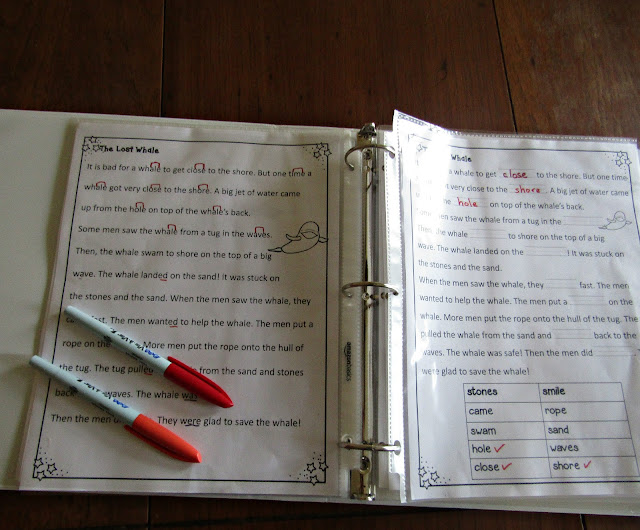 The Lost Whale
It is bad for a whale to get close to the shore. But one time a
whale got very close to the shore. A big jet of water came
up from the hole on top of the whale's back.
Some men saw the whale from a tug in the waves.
Then, the whale swam to shore on the top of a big
wave. The whale landed on the sand! It was stuck on
the stones and the sand. When the men saw the whale, they
fast. The men wanted to help the whale. The men put a
rope on the More men put the rope onto the hull of
the tug. The tug pulled from the sand and stones
back waves. The whale was
Then the men They were glad to save the whale!
Whale
a whale to get close to the shore. But one time
got very close to the shore. A big jet of water
hole on top of the whale's back.
men saw the whale from a tug in the
Then, the whale to shore on the top of a big
wave. The whale landed on the ! It was stuck on
the stones and the sand.
When the men saw the whale, they fast. The men
wanted to help the whale. The men put a on the
whale. More men put the rope onto the hull of the tug. The
pulled the whale from the sand and back to the
waves. The whale was safe! Then the men did
were glad to save the whale!
stones smile
came rope
swam sand
hole ✓ waves
close ✓ shore ✓